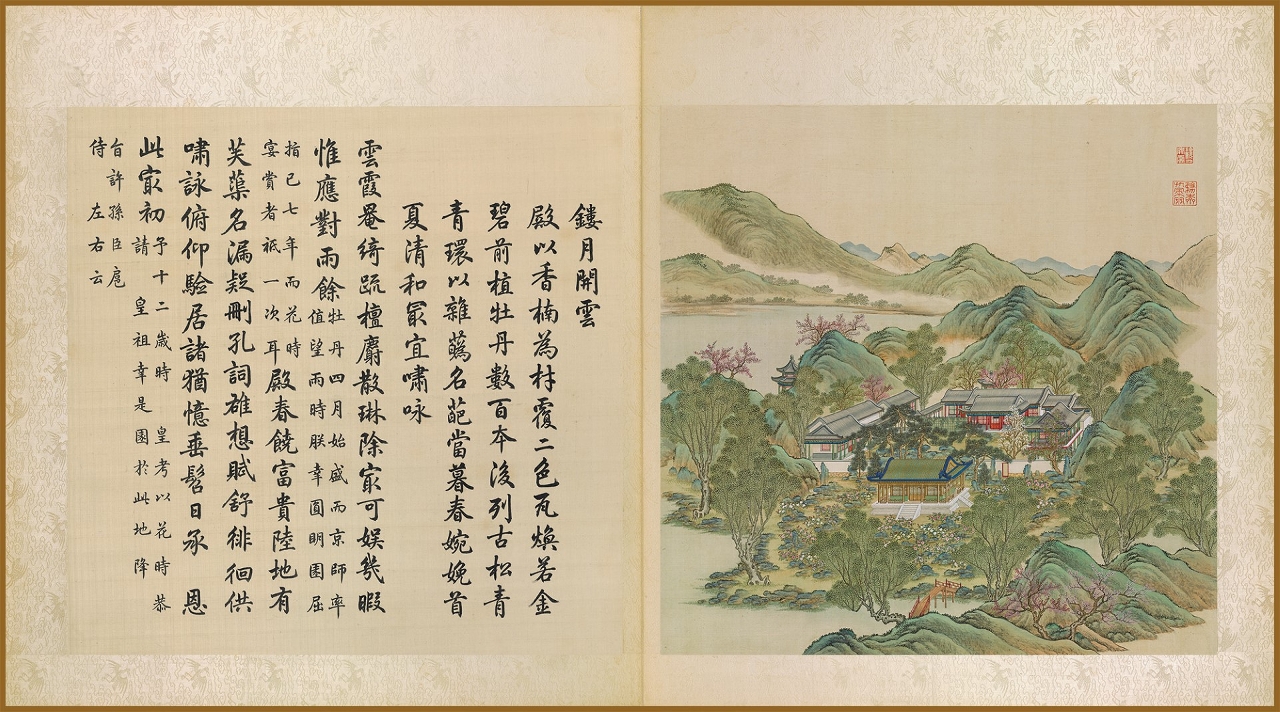 鏤月開雲
殿以香楠為材覆二色瓦煥若金
碧前植牡丹數百本後列古松青
青環以雜蘤名葩當暮春婉娩首
夏清和㝡宜嘯咏
雲霞罨綺疏檀麝散琳除㝡可娱幾暇
惟應對雨餘
牡丹四月始盛而京師率
值望雨時朕幸圓明園屈
指已七年而花時
宴賞者祇一次耳
殿春饒富貴陸地有
芙蕖名漏疑刪孔詞雄想賦舒徘徊供
嘯詠俯仰驗居諸猶憶垂髫日承 恩
此㝡初
予十二歲時 皇考以花時恭
請 皇祖幸是園於此地降
旨許孫臣扈
侍左右云